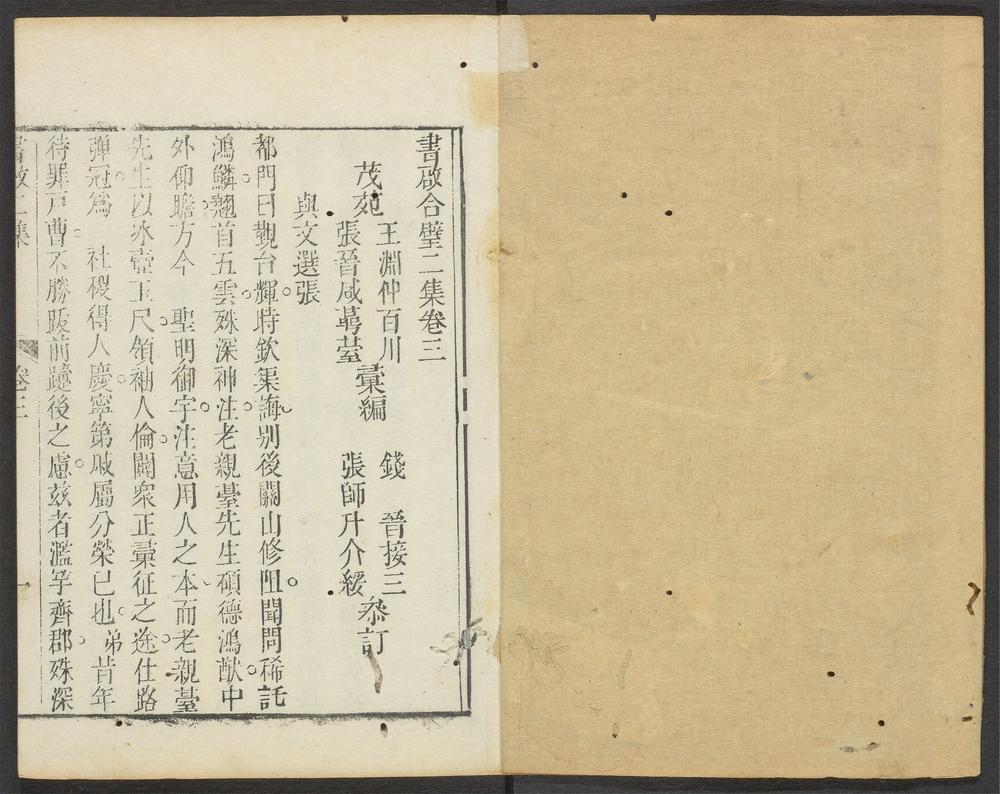 書啟合璧二集卷三
茂苑
王淵仲百川
張晉咸蕚莹
彙編
錢　晉接三
張師升介綏
叅訂
與文選張
都門日觀台輝時欽渠誨別後關山修阻聞問稀託
鴻鱗翹首五雲殊深神注老親臺先生碩德鴻猷中
外仰瞻方今　聖明御宇注意用人之本而老親臺
先生以冰壺玉尺領袖人倫闢衆正彙征之途仕路
彈冠爲　社稷得人慶寧第戚屬分榮已也弟昔年
待罪戸曹不勝跋前躓後之慮玆者濫竽齊郡殊深
書啟二集
卷三
一